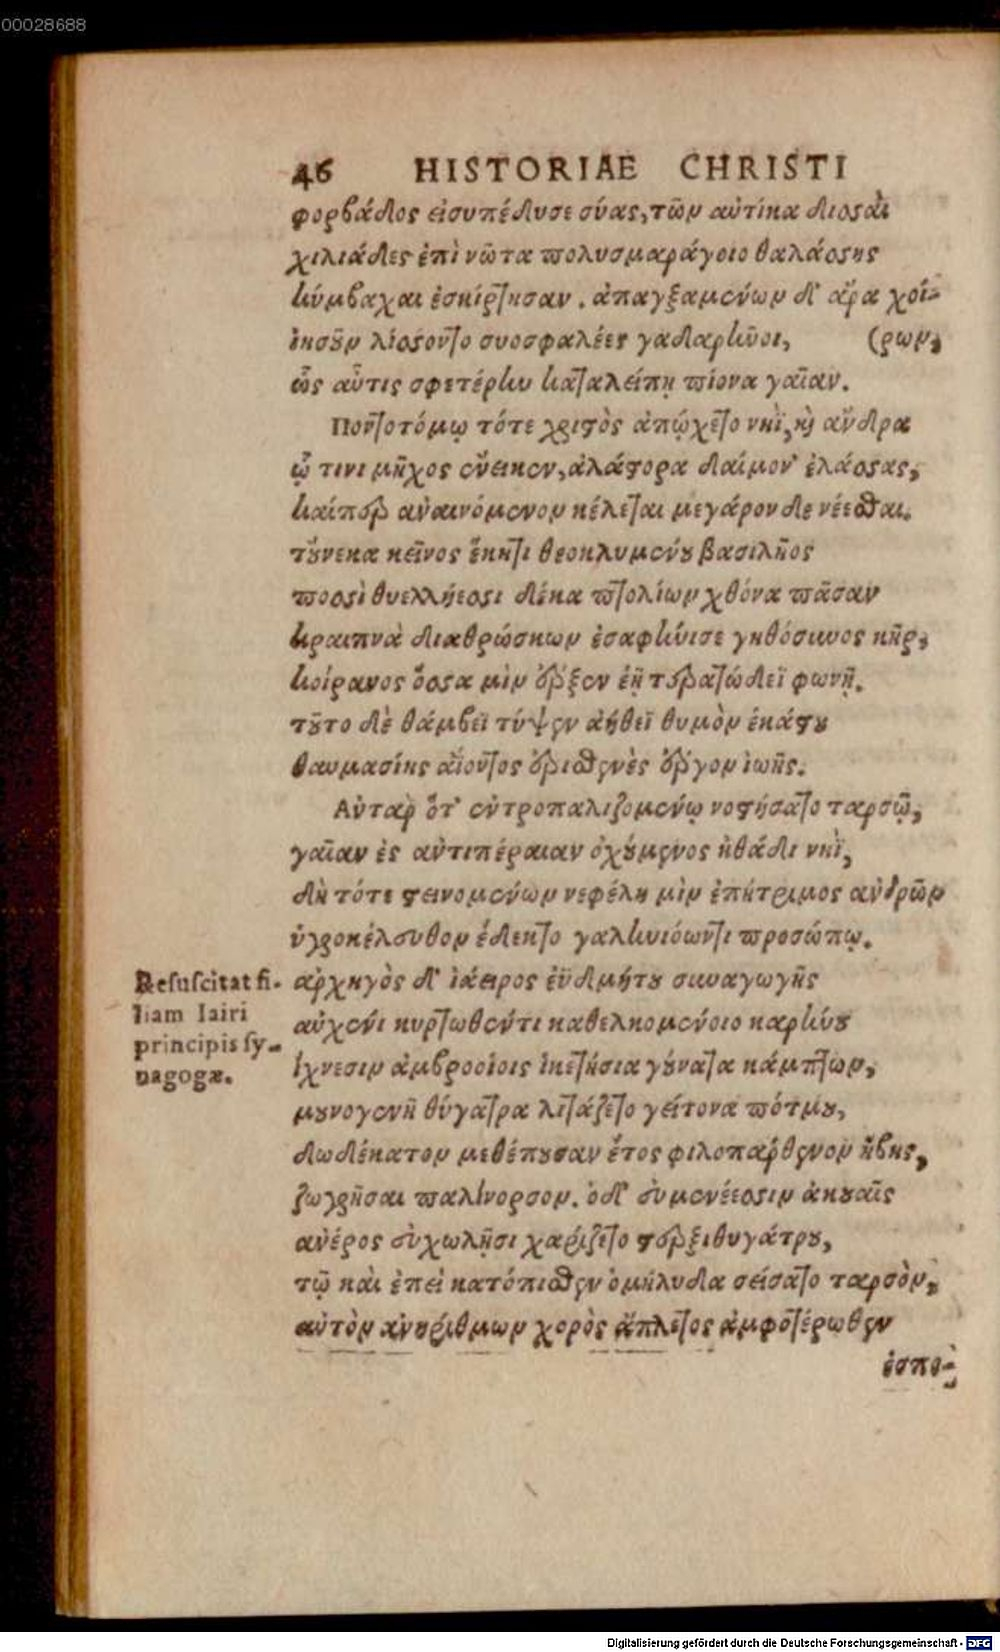 00028688
46 HISTORIAE CHRISTI
φορβάδος εἰσυπέδυσε σύας, τῶν αὐτίκα δισσαὶ
χιλιάδες ἐπὶ νῶτα πολυσμαράγοιο θαλάσσης
κύμβαχαι ἐσκίρτησαν. ἀπαγξαμένων δ' ἄρα χοί-
ἰησοῦν λίσσοντο συοσφαλέες γαδαρηνοι, (ρων,
ὡς αὖτις σφετέρην καταλείπῃ πίονα γαῖαν.
Ποντοτόμῳ τότε χριστὸς ἀπῴχετο νηῒ, καὶ ἄνδρα
ᾧ τινι μῆχος ἔνεικεν, ἀλάστορα δαίμον' ἐλάσσας,
καίπερ ἀναινόμενον κέλεται μεγάρον δε νέεσθαι.
τοὔνεκα κεῖνος ἕκητι θεοκλυμένου βασιλῆος
ποσσὶ θυελλήεσσι δέκα πτολίων χθόνα πᾶσαν
κραιπνὰ διαθρώσκων ἐσαφήνισε γηθόσυνος κῆρ,
κοίρανος ὅσσα μὶν ἔρξεν ἑῇ τερατώδεϊ φωνῇ.
τοῦτο δὲ θάμβεϊ τύψεν ἀήθεϊ θυμὸν ἑκάστου
θαυμασίης ἀΐοντος ἐρισθενὲς ἔργον ἰωῆς.
Αὐτὰρ ὅτ' ἐντροπαλιζομένῳ νοστήσατο ταρσῷ,
γαῖαν ἐς ἀντιπέραιαν ὀχούμενος ἠθάδι νηῒ,
δὴ τότε στεινομένων νεφέλη μὶν ἐπήτριμος ἀνδρῶν
ὑγροκέλευθον ἔδεκτο γαληνιόωντι προσώπῳ.
Resuscitat fi-
liam Iairi
principis sy-
nagogæ.
ἀρχηγὸς δ' ἰάειρος ἐϋδμήτου συναγωγῆς
αὐχένι κυρτωθέντι καθελκομένοιο καρήνου
ἴχνεσιν ἀμβροσίοις ἱκετήσια γούνατα κάμπτων,
μουνογενῆ θύγατρα λιτάζετο γείτονα πότμου,
δωδέκατον μεθέπουσαν ἔτος φιλοπάρθενον ἥβης,
ζωγρῆσαι παλίνορσον. ὁδ' εὐμενέεσσιν ἀκουαῖς
ἀνέρος εὐχωλῇσι χαρίζετο στερξιθυγάτρου,
τῷ καὶ ἐπεὶ κατόπισθεν ὁμήλυδα σείσατο ταρσὸν,
αὐτὸν ἀνηρίθμων χορὸς ἄπλετος ἀμφοτέρωθεν
ἑσπο-
Digitalisierung gefördert durch die Deutsche Forschungsgemeinschaft - DFG